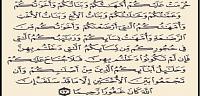 حُرِّمَتْ عَلَيْكُمْ أُمَّهَٰتُكُمْ وَبَنَاتُكُمْ وَأَخَوَٰتُكُمْ
وَعَمَّٰتُكُمْ وَخَٰلَٰتُكُمْ وَبَنَاتُ ٱلْأَخِ وَبَنَاتُ ٱلْأُخْتِ
وَأُمَّهَٰتُكُمُ ٱلَّٰتِىٓ أَرْضَعْنَكُمْ وَأَخَوَٰتُكُم مِّنَ
ٱلرَّضَٰعَةِ وَأُمَّهَٰتُ نِسَآئِكُمْ وَرَبَٰٓئِبُكُمُ ٱلَّٰتِى
فِى حُجُورِكُم مِّن نِّسَآئِكُمُ ٱلَّٰتِى دَخَلْتُم بِهِنَّ
فَإِن لَّمْ تَكُونُوا۟ دَخَلْتُم بِهِنَّ فَلَا جُنَاحَ عَلَيْكُمْ
وَحَلَٰٓئِلُ أَبْنَآئِكُمُ ٱلَّذِينَ مِنْ أَصْلَٰبِكُمْ وَأَن
تَجْمَعُوا۟ بَيْنَ ٱلْأُخْتَيْنِ إِلَّا مَا قَدْ سَلَفَ إِنَّ
ٱللَّهَ كَانَ غَفُورًا رَّحِيمًا